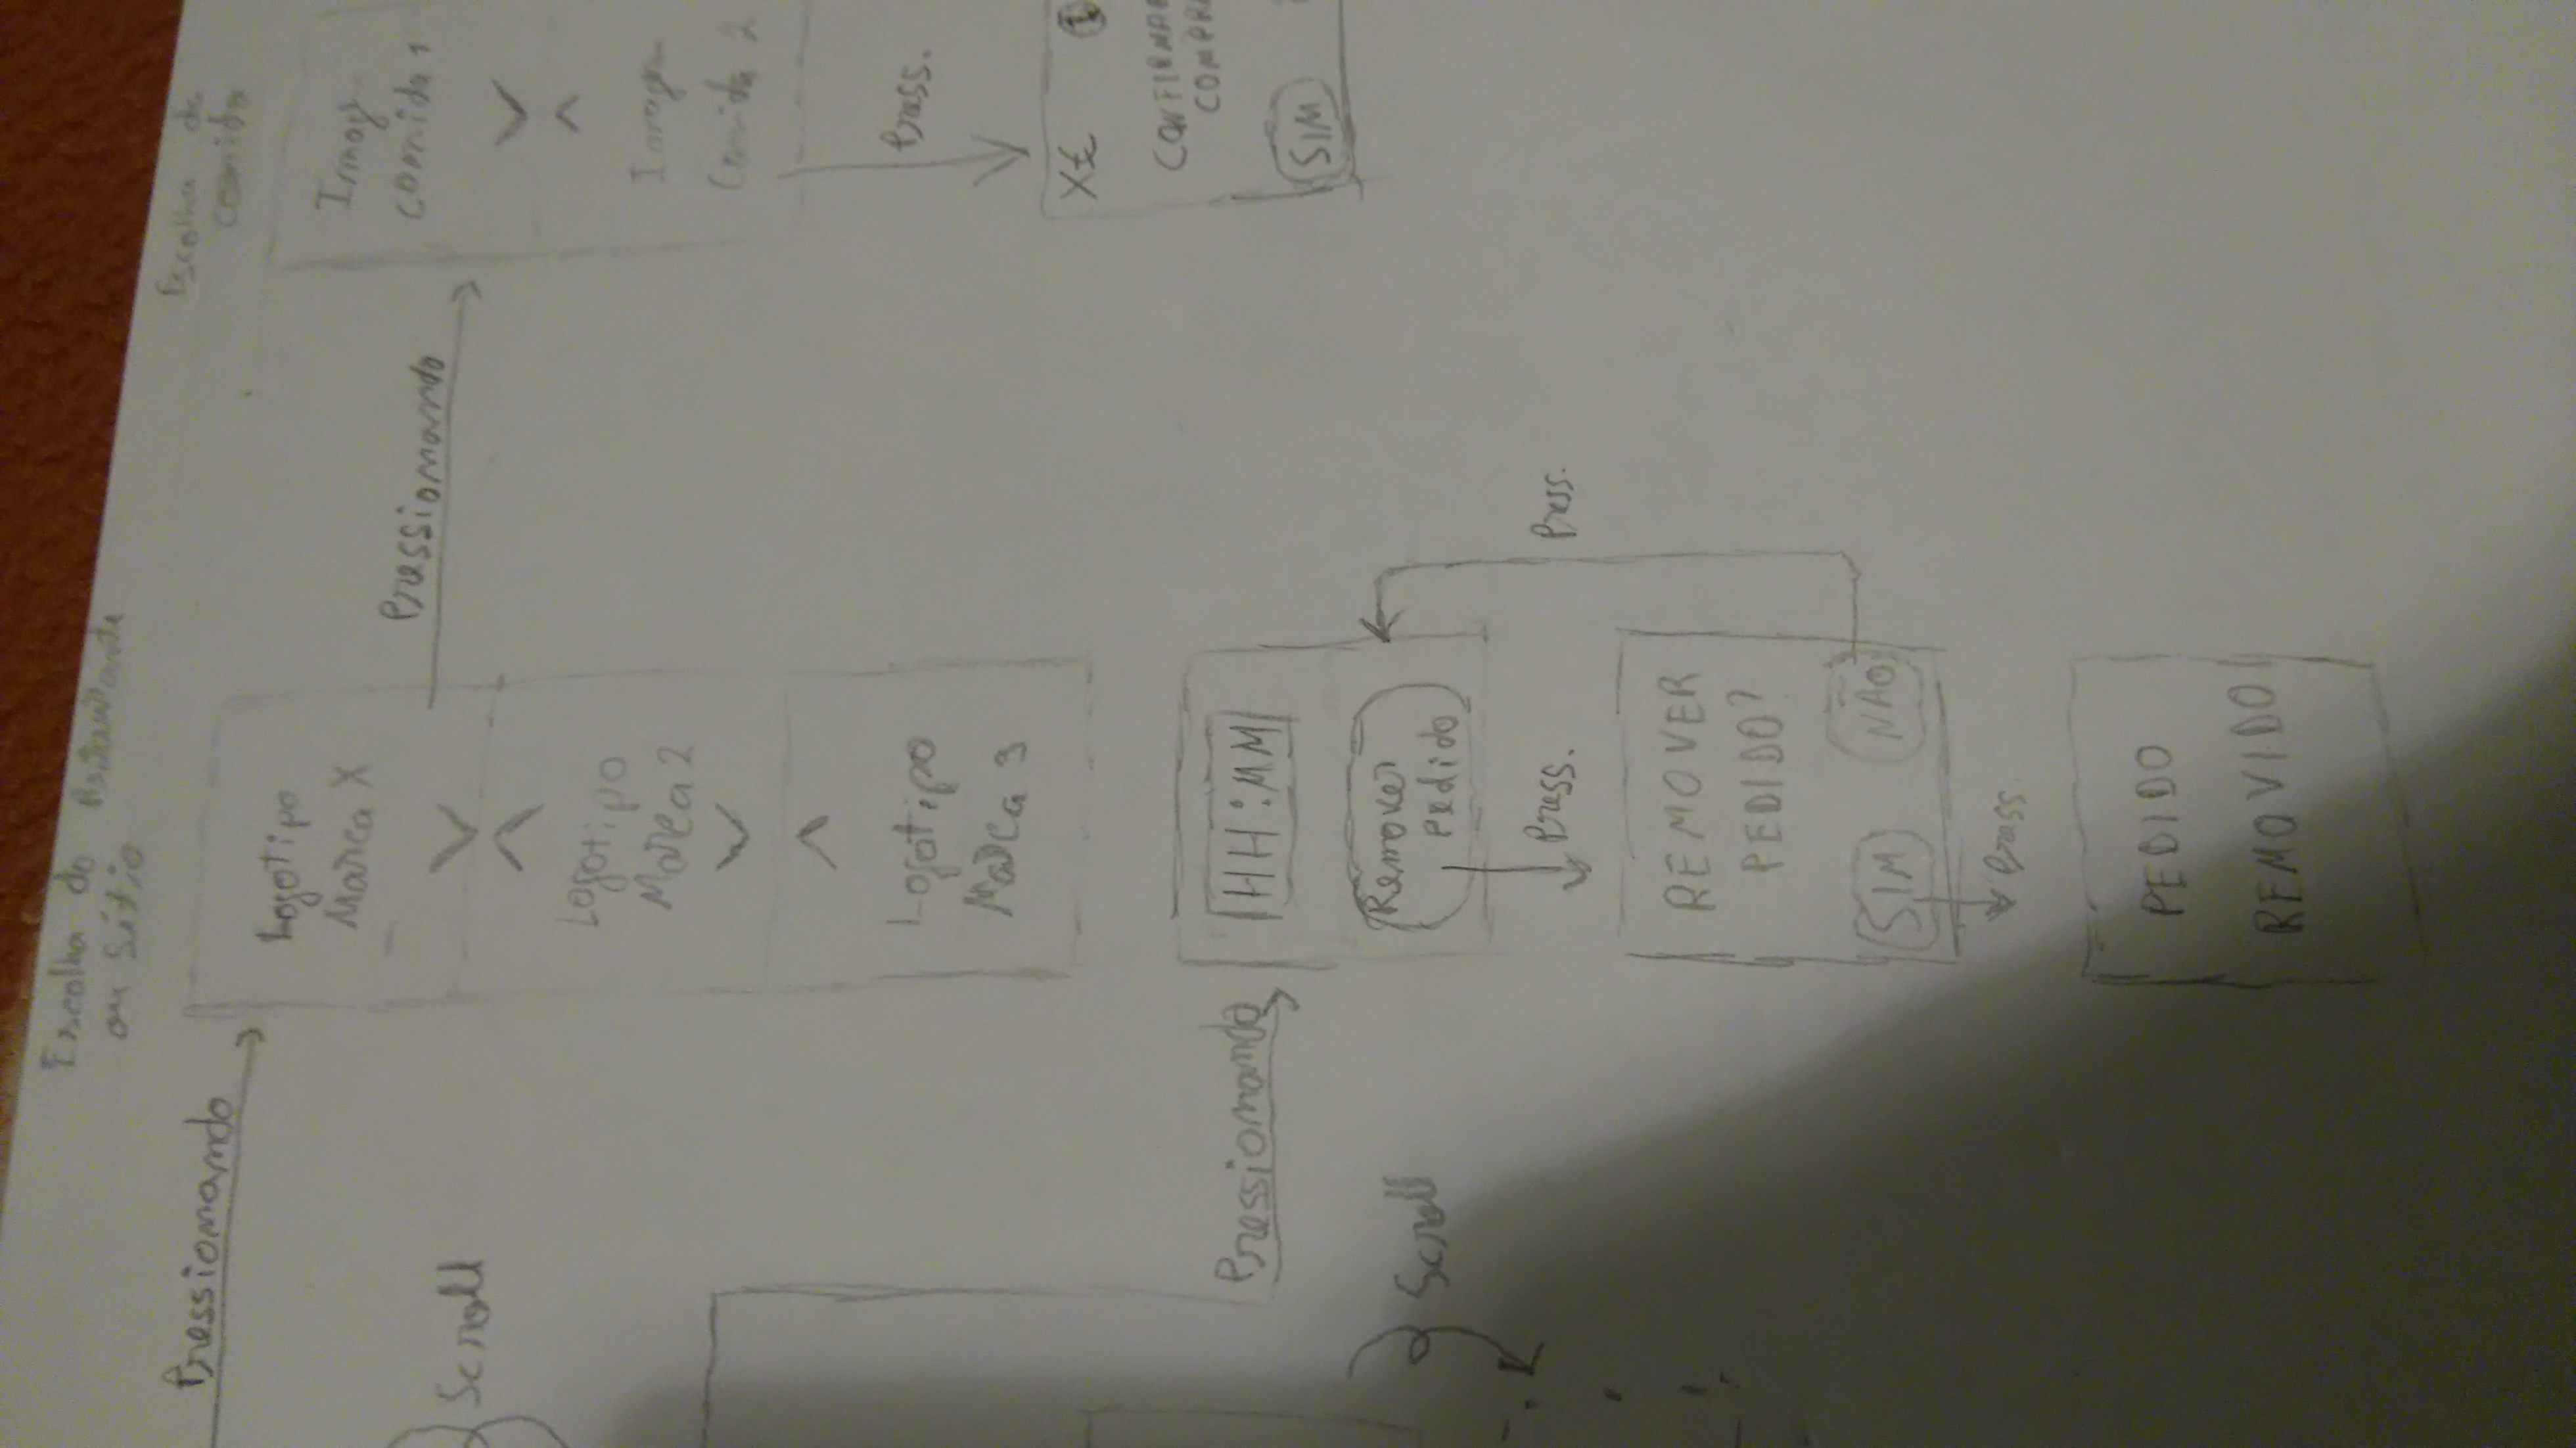 Escolha do Restaurante
ou Sítio
Pressionando
Logotipo
Marca X
Scroll
Logotipo
Marca 2
Logotipo
Marca 3
Pressionando
Escolha de
comida
Imagem
comida 1
Imagem
Comida 2
Press.
X£
CONFIRMA
COMPRA
SIM
Pressionando
HH:MM
Remover
Pedido
Scroll
Press.
Press.
REMOVER
PEDIDO?
SIM
NÃO
Press.
PEDIDO
REMOVIDO